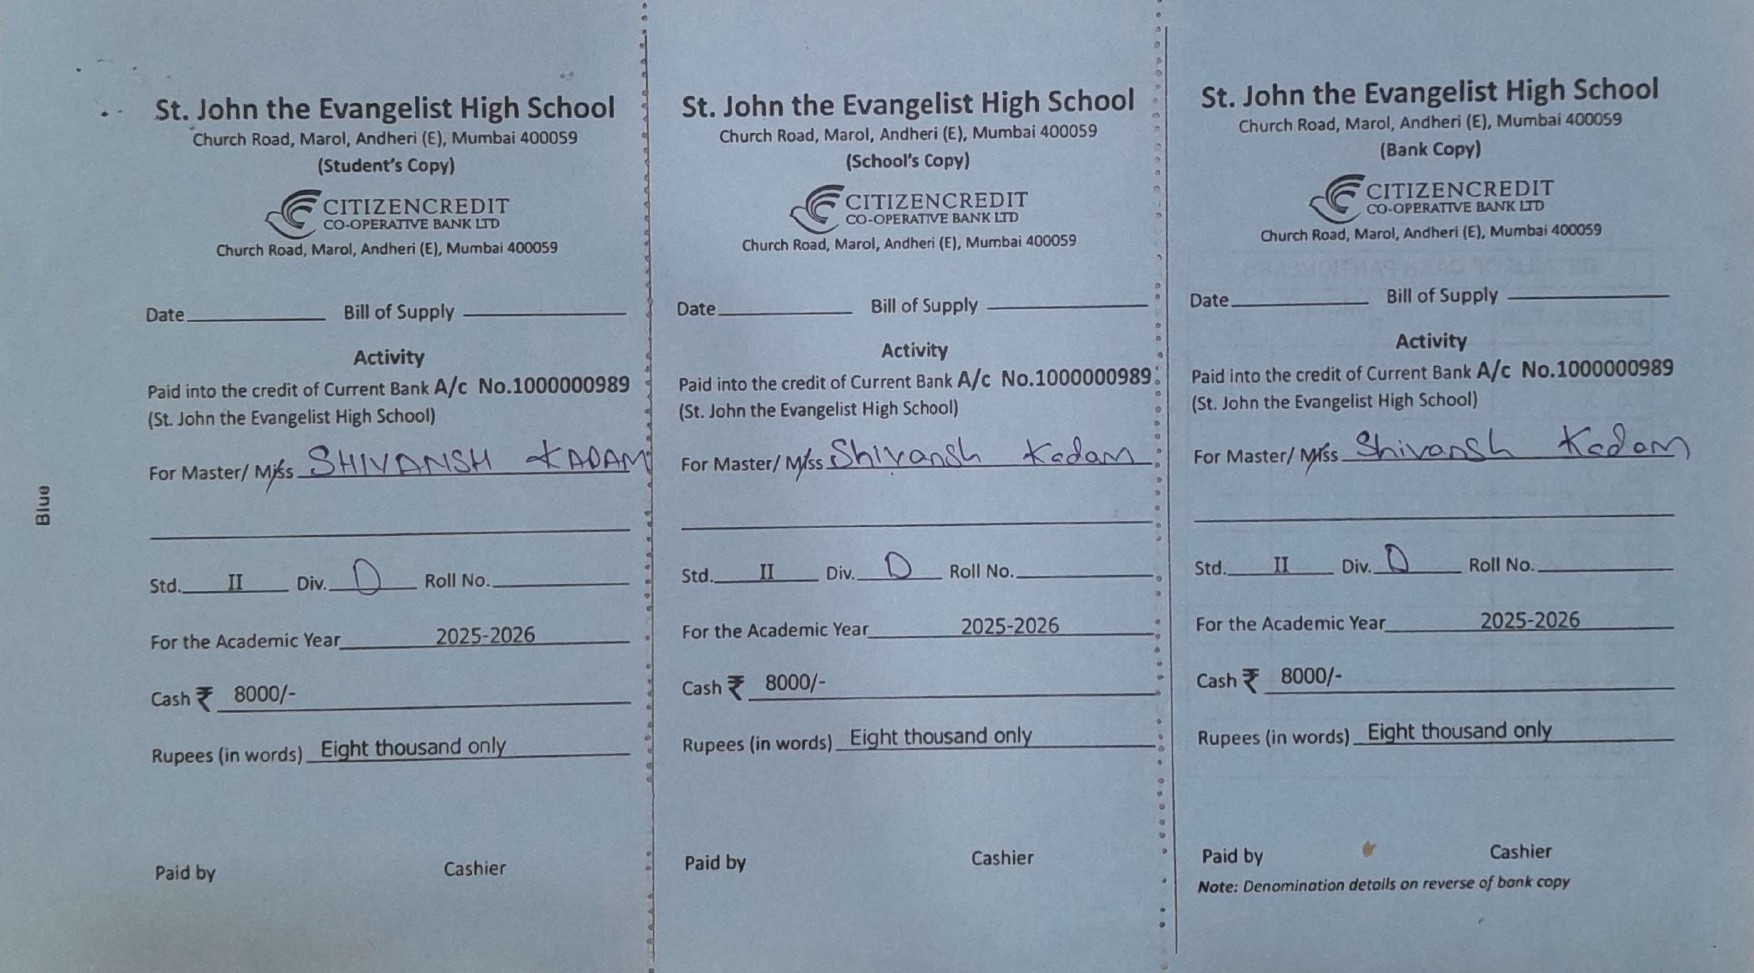 St. John the Evangelist High School
Church Road, Marol, Andheri (E), Mumbai 400059
(Student's Copy)
CITIZENCREDIT
CO-OPERATIVE BANK LTD
Church Road, Marol, Andheri (E), Mumbai 400059
Date Bill of Supply
Activity
Paid into the credit of Current Bank A/c No.1000000989
(St. John the Evangelist High School)
For Master/ Miss SHIVANSH KADAM
Std. II Div. D Roll No.
For the Academic Year 2025-2026
Cash ₹ 8000/-
Rupees (in words) Eight thousand only
Paid by Cashier
Blue
St. John the Evangelist High School
Church Road, Marol, Andheri (E), Mumbai 400059
(School's Copy)
CITIZENCREDIT
CO-OPERATIVE BANK LTD
Church Road, Marol, Andheri (E), Mumbai 400059
Date Bill of Supply
Activity
Paid into the credit of Current Bank A/c No.1000000989
(St. John the Evangelist High School)
For Master/ Miss Shivansh Kadam
Std. II Div. D Roll No.
For the Academic Year 2025-2026
Cash ₹ 8000/-
Rupees (in words) Eight thousand only
Paid by Cashier
St. John the Evangelist High School
Church Road, Marol, Andheri (E), Mumbai 400059
(Bank Copy)
CITIZENCREDIT
CO-OPERATIVE BANK LTD
Church Road, Marol, Andheri (E), Mumbai 400059
Date Bill of Supply
Activity
Paid into the credit of Current Bank A/c No.1000000989
(St. John the Evangelist High School)
For Master/ Miss Shivansh Kadam
Std. II Div. D Roll No.
For the Academic Year 2025-2026
Cash ₹ 8000/-
Rupees (in words) Eight thousand only
Paid by Cashier
Note: Denomination details on reverse of bank copy